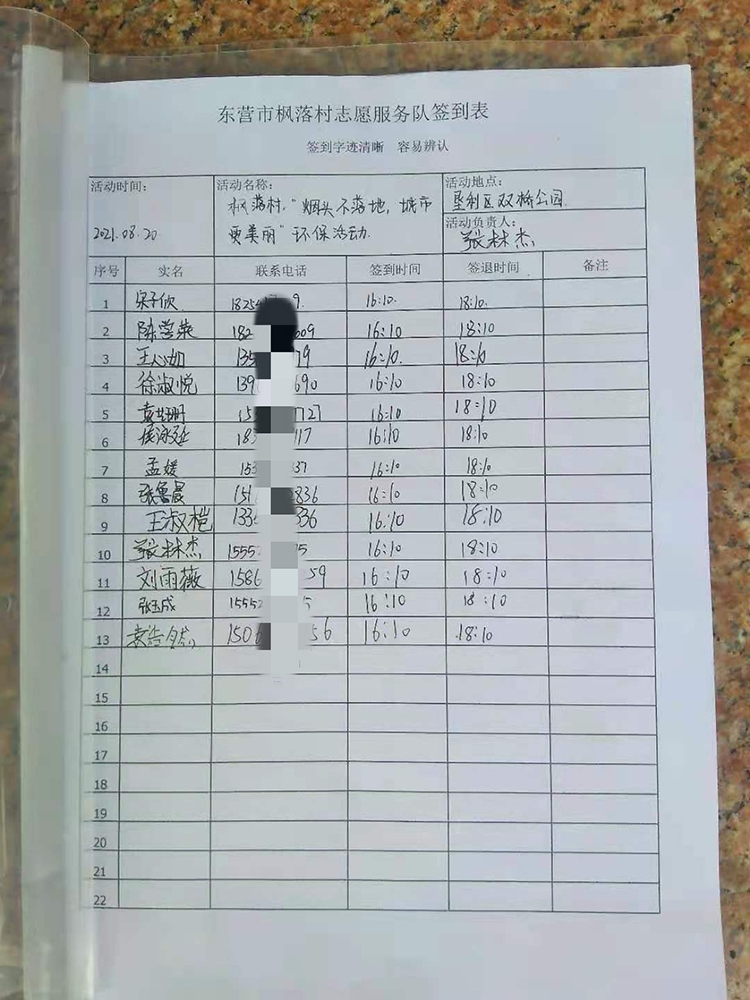 东营市枫落村志愿服务队签到表
签到字迹清晰 容易辨认
活动时间: 活动名称: 活动地点:
枫落村"烟头不落地,城市 垦利区双桥公园
2021.08.20 更美丽"环保活动 活动负责人:
张林杰
序号 实名 联系电话 签到时间 签退时间 备注
1 宋子欣 1825 9 16:10 18:10
2 陈营荣 182 609 16:10 18:10
3 王心如 135 79 16:10 18:10
4 徐淑悦 139 690 16:10 18:10
5 15 7127 16:10 18:10
6 侯泳延 183 117 16:10 18:10
7 孟媛 153 337 16:10 18:10
8 张鲁晨 151 836 16:10 18:10
9 王淑桤 133 336 16:10 18:10
10 张林杰 1555 5 16:10 18:10
11 刘雨薇 1586 59 16:10 18:10
12 张玉成 1555 5 16:10 18:10
13 1506 56 16:10 18:10
14
15
16
17
18
19
20
21
22